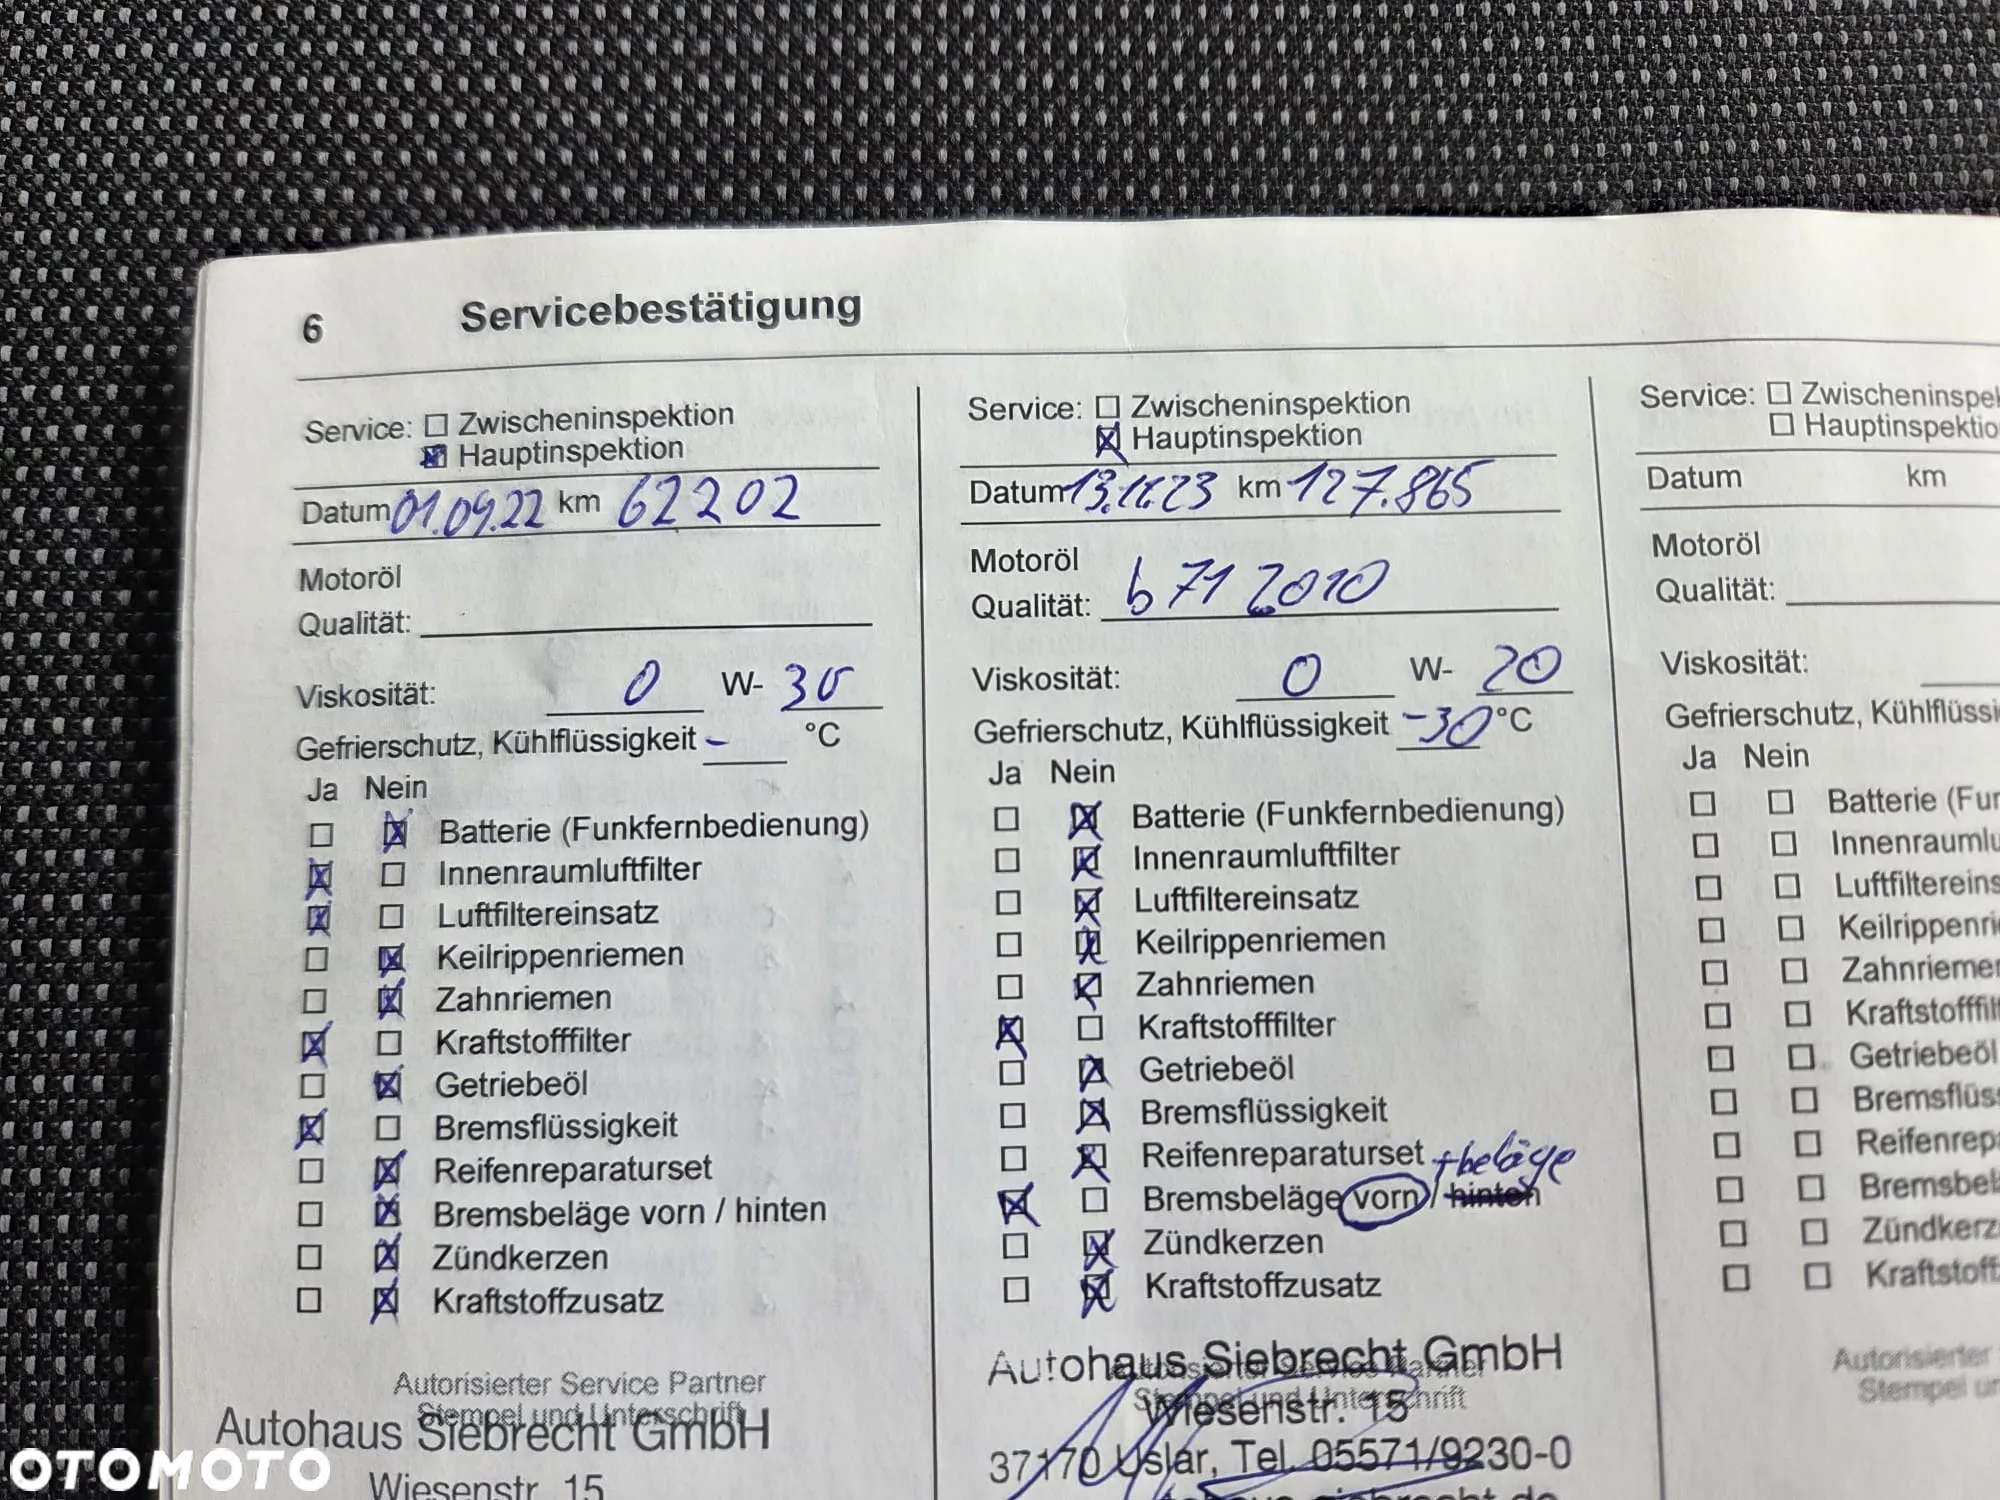 6 Servicebestätigung
Service: Zwischeninspektion
Hauptinspektion
Datum 01.09.22 km 62202
Motoröl
Qualität:
Viskosität: 0 W- 30
Gefrierschutz, Kühlflüssigkeit - °C
Ja Nein
Batterie (Funkfernbedienung)
Innenraumluftfilter
Luftfiltereinsatz
Keilrippenriemen
Zahnriemen
Kraftstofffilter
Getriebeöl
Bremsflüssigkeit
Reifenreparaturset
Bremsbeläge vorn / hinten
Zündkerzen
Kraftstoffzusatz
Autorisierter Service Partner
Stempel und Unterschrift
Autohaus Siebrecht GmbH
Wiesenstr. 15
Service: Zwischeninspektion
Hauptinspektion
Datum km 127.865
Motoröl
Qualität: b71 2010
Viskosität: 0 W- 20
Gefrierschutz, Kühlflüssigkeit -30 °C
Ja Nein
Batterie (Funkfernbedienung)
Innenraumluftfilter
Luftfiltereinsatz
Keilrippenriemen
Zahnriemen
Kraftstofffilter
Getriebeöl
Bremsflüssigkeit
Reifenreparaturset +beläge
Bremsbeläge vorn / hinten
Zündkerzen
Kraftstoffzusatz
Autohaus Siebrecht GmbH
Stempel und Unterschrift
Wiesenstr. 15
37170 Uslar, Tel. 05571/9230-0
Service: Zwischeninspek
Hauptinspektio
Datum km
Motoröl
Qualität:
Viskosität:
Gefrierschutz, Kühlflüssi
Ja Nein
Batterie (Fun
Innenraumlu
Luftfiltereins
Keilrippenri
Zahnriemen
Kraftstofffil
Getriebeöl
Bremsflüs
Reifenrep
Bremsbel
Zündkerz
Kraftstoff
Autorisierter
Stempel un
OTOMOTO